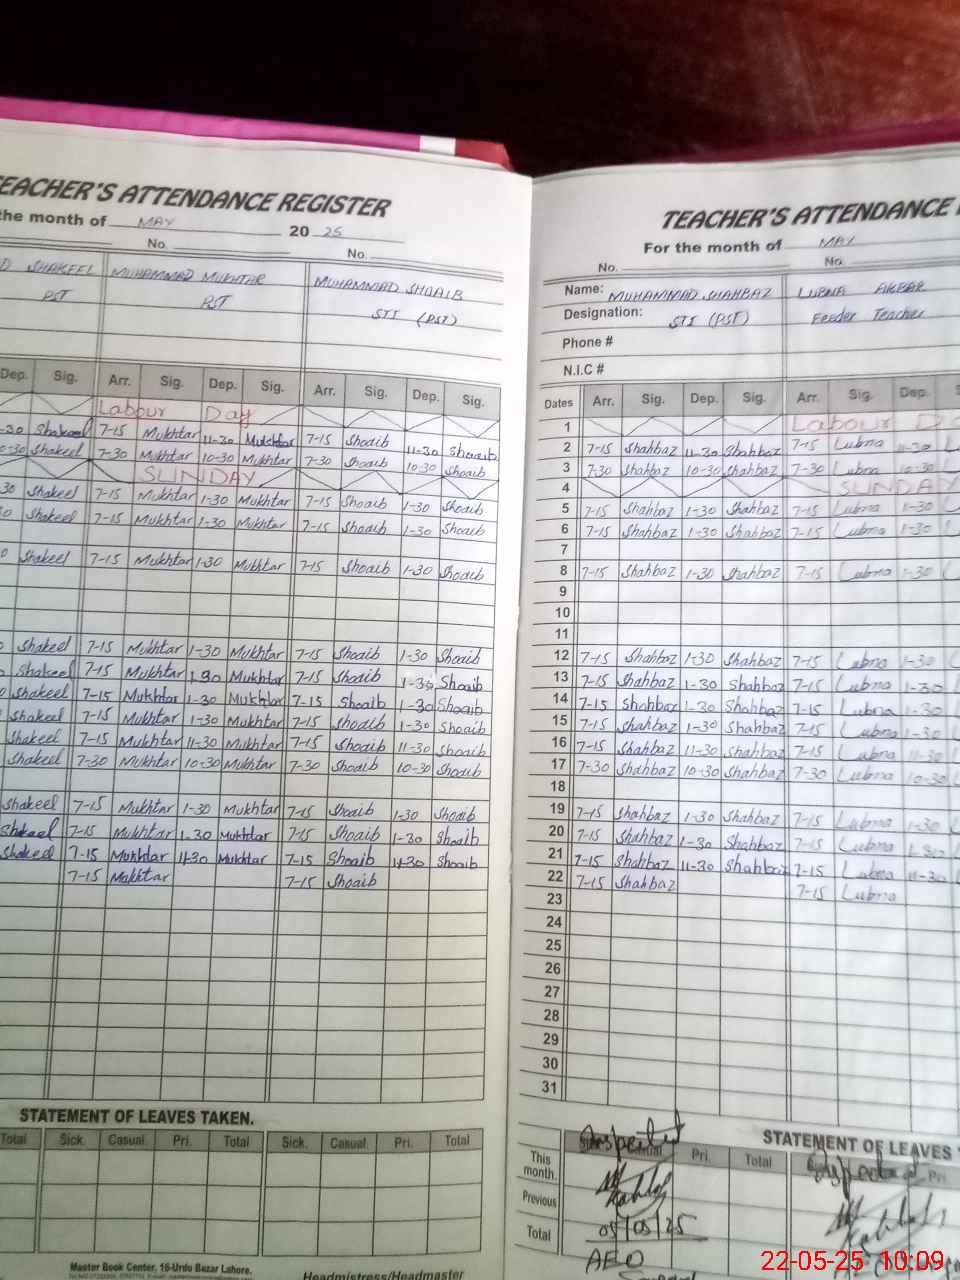 TEACHER'S ATTENDANCE REGISTER
the month of MAY 20 25
No. No.
SHAKEEL MUHAMMAD MUKHTAR MUHAMMAD SHOAIB
PST PST STI (PST)
Dep. Sig. Arr. Sig. Dep. Sig. Arr. Sig. Dep. Sig.
Labour Day
-30 Shakeel 7-15 Mukhtar 11-30 Mukhtar 7-15 Shoaib 11-30 Shoaib
0-30 Shakeel 7-30 Mukhtar 10-30 Mukhtar 7-30 Shoaib 10-30 Shoaib
SUNDAY
30 Shakeel 7-15 Mukhtar 1-30 Mukhtar 7-15 Shoaib 1-30 Shoaib
0 Shakeel 7-15 Mukhtar 1-30 Mukhtar 7-15 Shoaib 1-30 Shoaib
0 Shakeel 7-15 Mukhtar 1-30 Mukhtar 7-15 Shoaib 1-30 Shoaib
Shakeel 7-15 Mukhtar 1-30 Mukhtar 7-15 Shoaib 1-30 Shoaib
Shakeel 7-15 Mukhtar 1-30 Mukhtar 7-15 Shoaib 1-30 Shoaib
Shakeel 7-15 Mukhtar 1-30 Mukhtar 7-15 Shoaib 1-30 Shoaib
Shakeel 7-15 Mukhtar 1-30 Mukhtar 7-15 Shoaib 1-30 Shoaib
Shakeel 7-15 Mukhtar 11-30 Mukhtar 7-15 Shoaib 11-30 Shoaib
Shakeel 7-30 Mukhtar 10-30 Mukhtar 7-30 Shoaib 10-30 Shoaib
Shakeel 7-15 Mukhtar 1-30 Mukhtar 7-15 Shoaib 1-30 Shoaib
Shakeel 7-15 Mukhtar 1-30 Mukhtar 7-15 Shoaib 1-30 Shoaib
Shakeel 7-15 Mukhtar 11-30 Mukhtar 7-15 Shoaib 11-30 Shoaib
7-15 Mukhtar 7-15 Shoaib
STATEMENT OF LEAVES TAKEN.
Total Sick. Casual. Pri. Total Sick. Casual. Pri. Total
Master Book Center, 16-Urdu Bazar Lahore.
Headmistress/Headmaster
TEACHER'S ATTENDANCE
For the month of MAY
No. No.
Name: MUHAMMAD SHAHBAZ LUBNA AKBAR
Designation: STI (PST) Feeder Teacher
Phone #
N.I.C #
Dates Arr. Sig. Dep. Sig. Arr. Sig. Dep.
1 Labour D
2 7-15 Shahbaz 11-30 Shahbaz 7-15 Lubna 11-30
3 7-30 Shahbaz 10-30 Shahbaz 7-30 Lubna 10-30
4 SUNDAY
5 7-15 Shahbaz 1-30 Shahbaz 7-15 Lubna 1-30
6 7-15 Shahbaz 1-30 Shahbaz 7-15 Lubna 1-30
7
8 7-15 Shahbaz 1-30 Shahbaz 7-15 Lubna 1-30
9
10
11
12 7-15 Shahbaz 1-30 Shahbaz 7-15 Lubna 1-30
13 7-15 Shahbaz 1-30 Shahbaz 7-15 Lubna 1-30
14 7-15 Shahbaz 1-30 Shahbaz 7-15 Lubna 1-30
15 7-15 Shahbaz 1-30 Shahbaz 7-15 Lubna 1-30
16 7-15 Shahbaz 11-30 Shahbaz 7-15 Lubna 11-30
17 7-30 Shahbaz 10-30 Shahbaz 7-30 Lubna 10-30
18
19 7-15 Shahbaz 1-30 Shahbaz 7-15 Lubna 1-30
20 7-15 Shahbaz 1-30 Shahbaz 7-15 Lubna 1-30
21 7-15 Shahbaz 11-30 Shahbaz 7-15 Lubna 11-30
22 7-15 Shahbaz 7-15 Lubna
23
24
25
26
27
28
29
30
31
STATEMENT OF LEAVES
Inspected Casual Pri. Total Inspected Pri.
This month.
Previous
Total 05/05/25
AEO
22-05-25 10:09